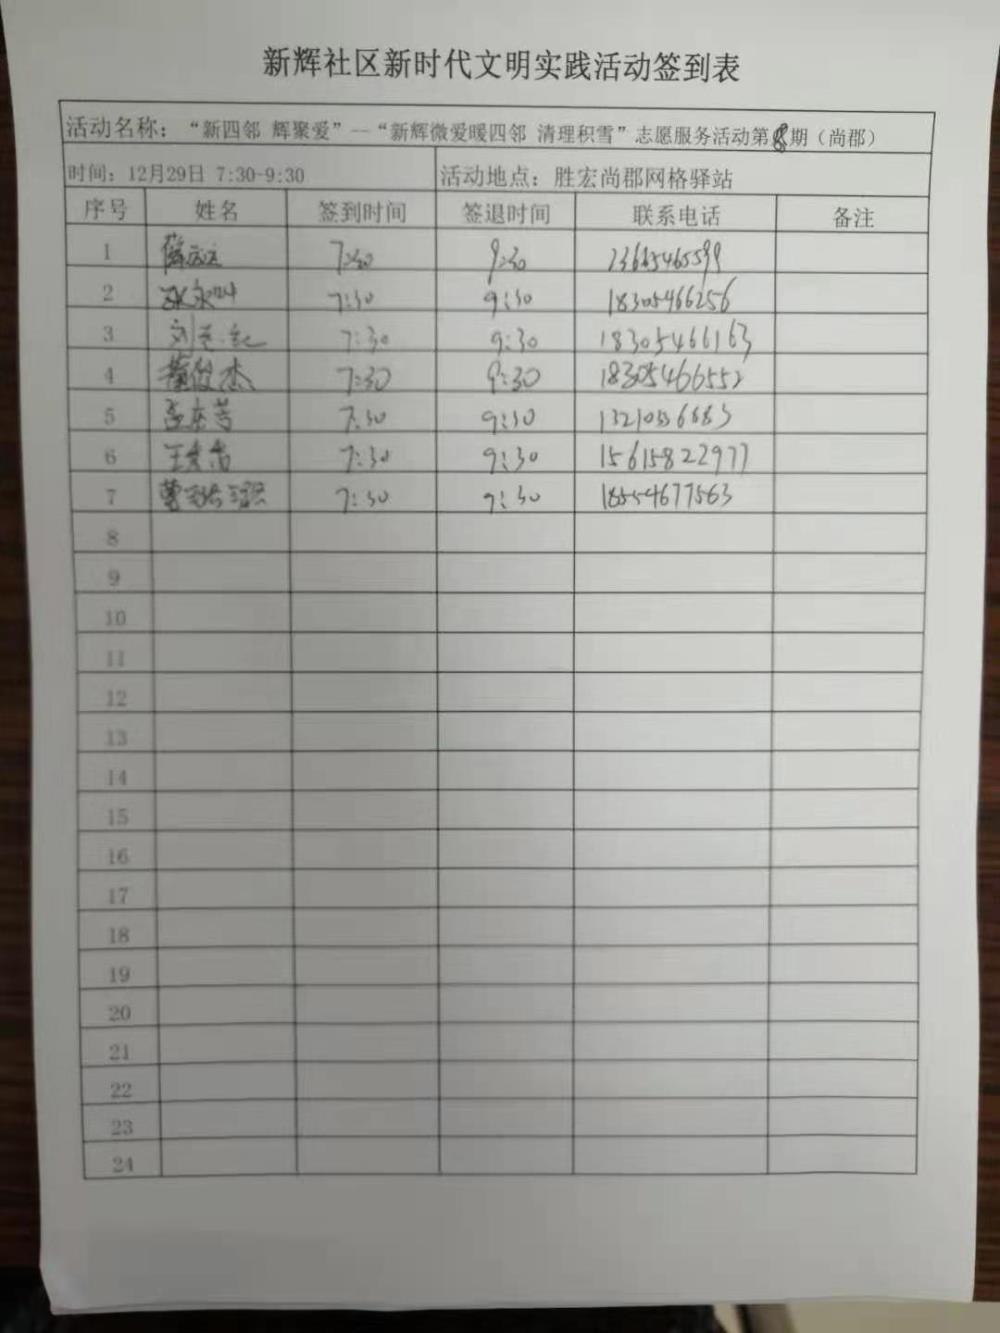 新辉社区新时代文明实践活动签到表
活动名称：“新四邻 辉聚爱”--“新辉微爱暖四邻 清理积雪”志愿服务活动第8期（尚郡）
时间：12月29日 7:30-9:30 活动地点：胜宏尚郡网格驿站
序号 姓名 签到时间 签退时间 联系电话 备注
1 7:30 9:30
2 7:30 9:30 18305466256
3 7:30 9:30 18305466163
4 董俊杰 7:30 9:30 18305466552
5 7:30 9:30
6 7:30 9:30 15615822977
7 7:30 9:30 18554677563
8
9
10
11
12
13
14
15
16
17
18
19
20
21
22
23
24